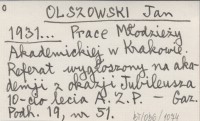 OLSZOWSKI Jan
1931... Prace Młodzieży
Akademickiej w Krakowie.
Referat wygłoszony na aka-
demji z okazji Jubileusza
10-cio lecia A.Z.P. - Gaz.
Podh. 19, nr 51.